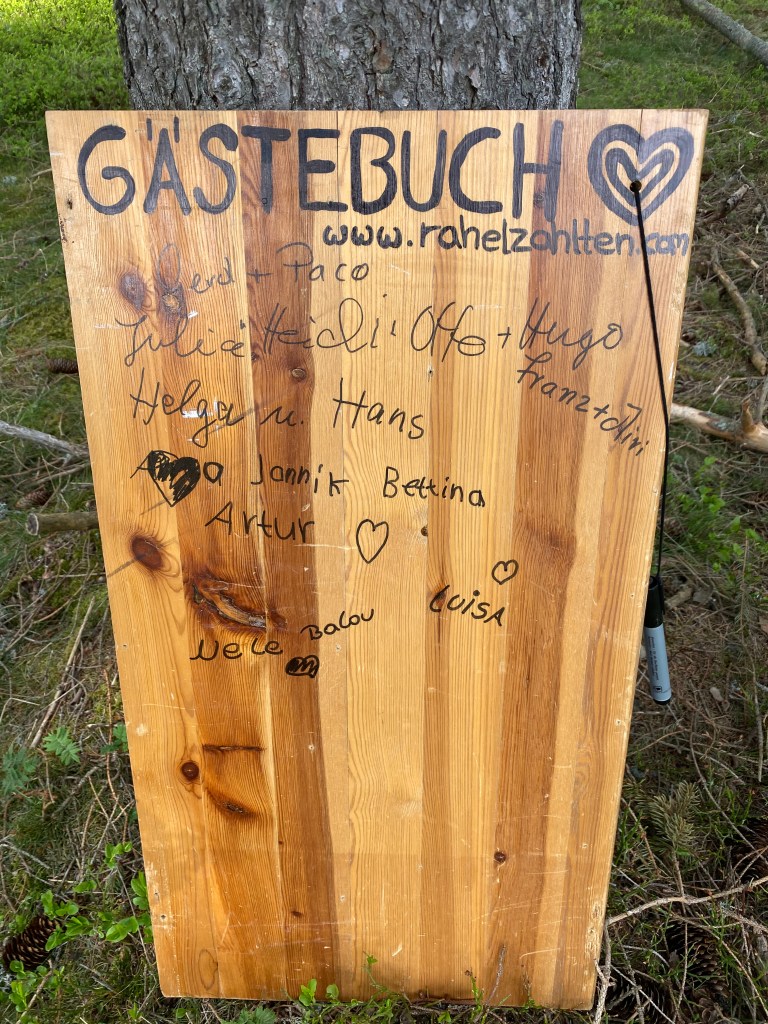 GÄSTEBUCH
www.rahelzahltten.com
Gerd + Paco
Julia Heidi Otto + Hugo
Franz + Jiri
Helga u. Hans
Jannik Bettina
Artur
LUISA
Nele Balou